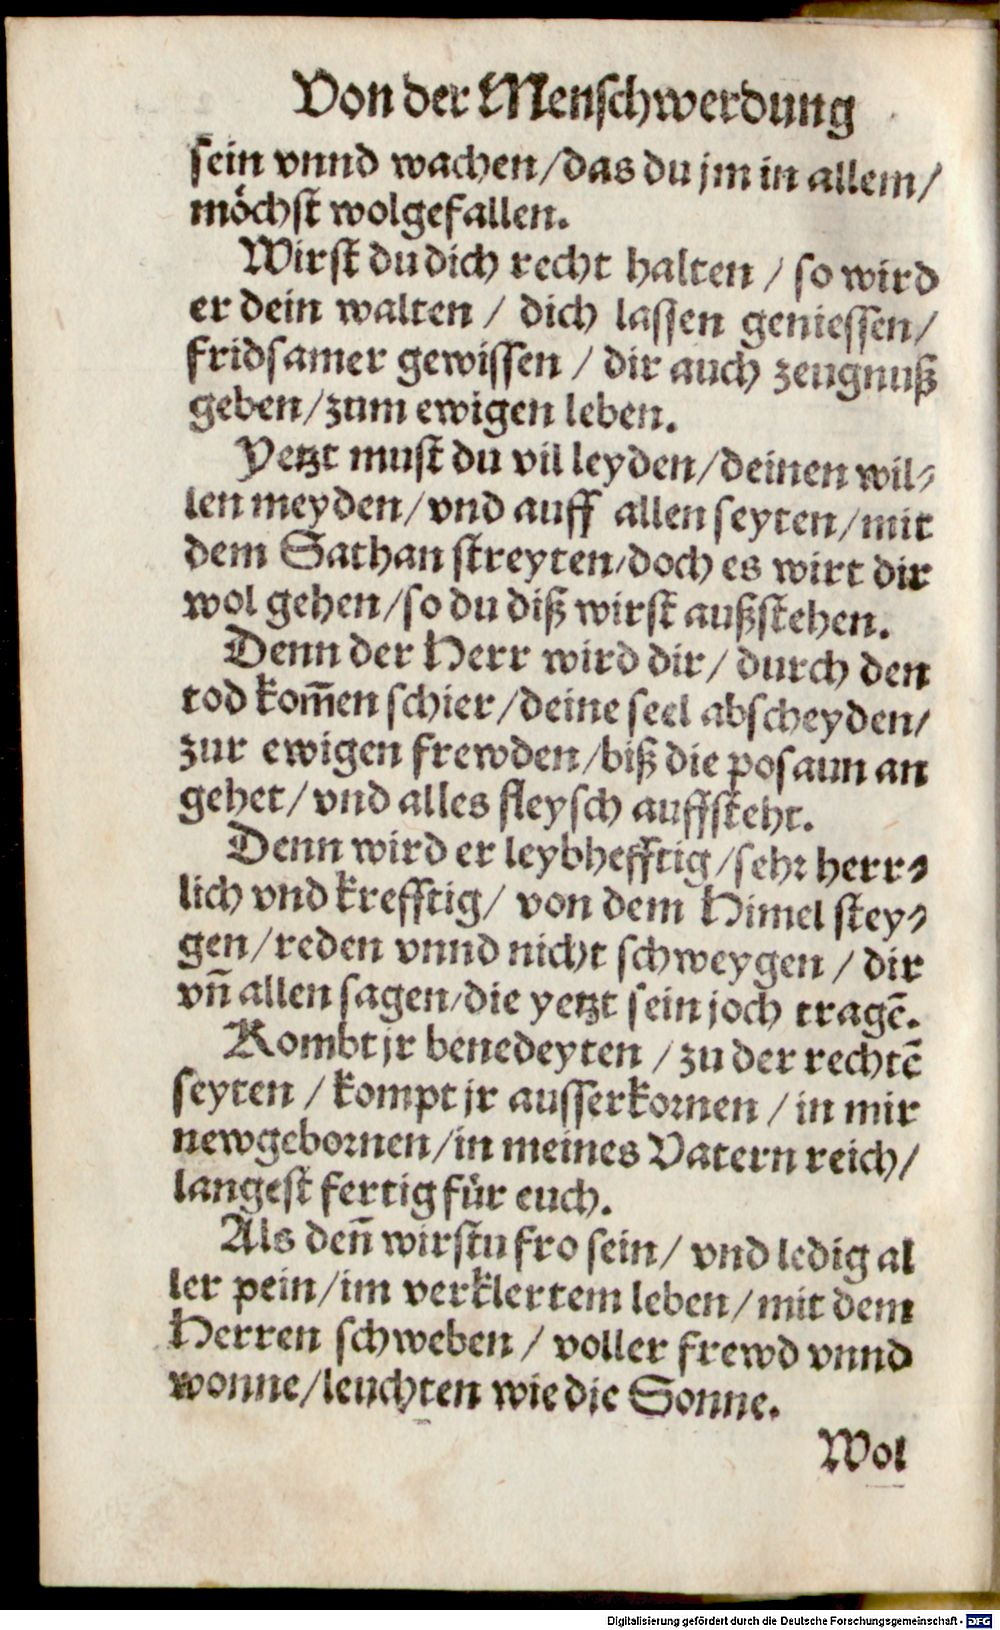 Von der Menschwerdung
sein vnnd wachen/das du jm in allem/
möchst wolgefallen.
Wirst du dich recht halten / so wird
er dein walten / dich lassen geniessen/
fridsamer gewissen / dir auch zeugnuß
geben/zum ewigen leben.
Yetzt must du vil leyden/deinen wil⸗
len meyden/vnd auff allen seyten/mit
dem Sathan streyten/doch es wirt dir
wol gehen/so du diß wirst außstehen.
Denn der Herr wird dir/ durch den
tod kom̄en schier/deine seel abscheyden/
zur ewigen frewden/biß die posaun an
gehet/ vnd alles fleysch auffsteht.
Denn wird er leybhefftig/sehr herr⸗
lich vnd krefftig/ von dem Himel stey⸗
gen/reden vnnd nicht schweygen / dir
vn̄ allen sagen/die yetzt sein joch tragē.
Kombt jr benedeyten / zu der rechtē
seyten / kompt jr ausserkornen / in mir
newgebornen/in meines Vatern reich/
langest fertig für euch.
Als den̄ wirstu fro sein/ vnd ledig al
ler pein/im verklertem leben/mit dem
Herren schweben / voller frewd vnnd
wonne/leuchten wie die Sonne.
Wol
Digitalisierung gefördert durch die Deutsche Forschungsgemeinschaft - DFG